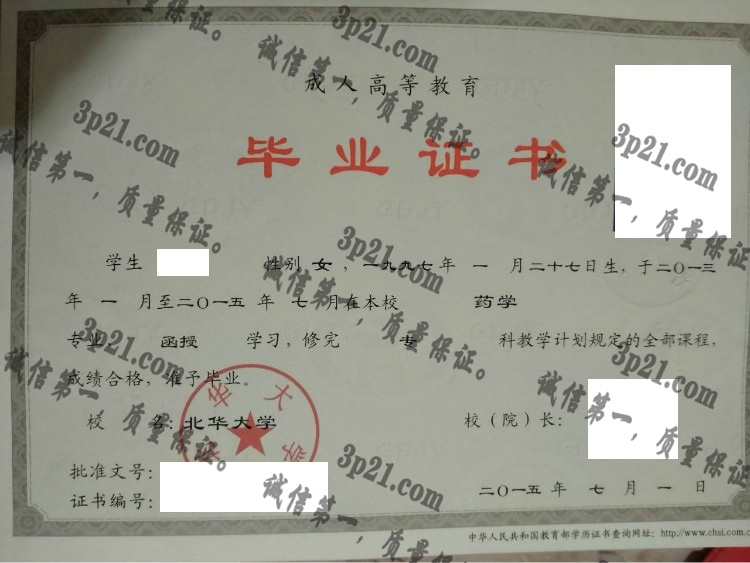 成人高等教育
毕业证书
学生 性别 女，一九九七年 一 月二十七日生，于二〇一三
年 一 月至二〇一五 年 七 月在本校 药学
专业 函授 学习，修完 专 科教学计划规定的全部课程，
成绩合格，准予毕业。
校 名：北华大学 校（院）长：
批准文号：
证书编号：
二〇一五 年 七 月 一 日
中华人民共和国教育部学历证书查询网址：http://www.chsi.com.c
北华大学
3p21.com
诚信第一，质量保证。
3p21.com
诚信第一，质量保证。
3p21.com
诚信第一，质量保证。
3p21.com
诚信第一，质量保证。
3p21.com
诚信第一，质量保证。
3p21.com
诚信第一，质量保证。
3p21.com
诚信第一，质量保证。
3p21.com
诚信第一，质量保证。